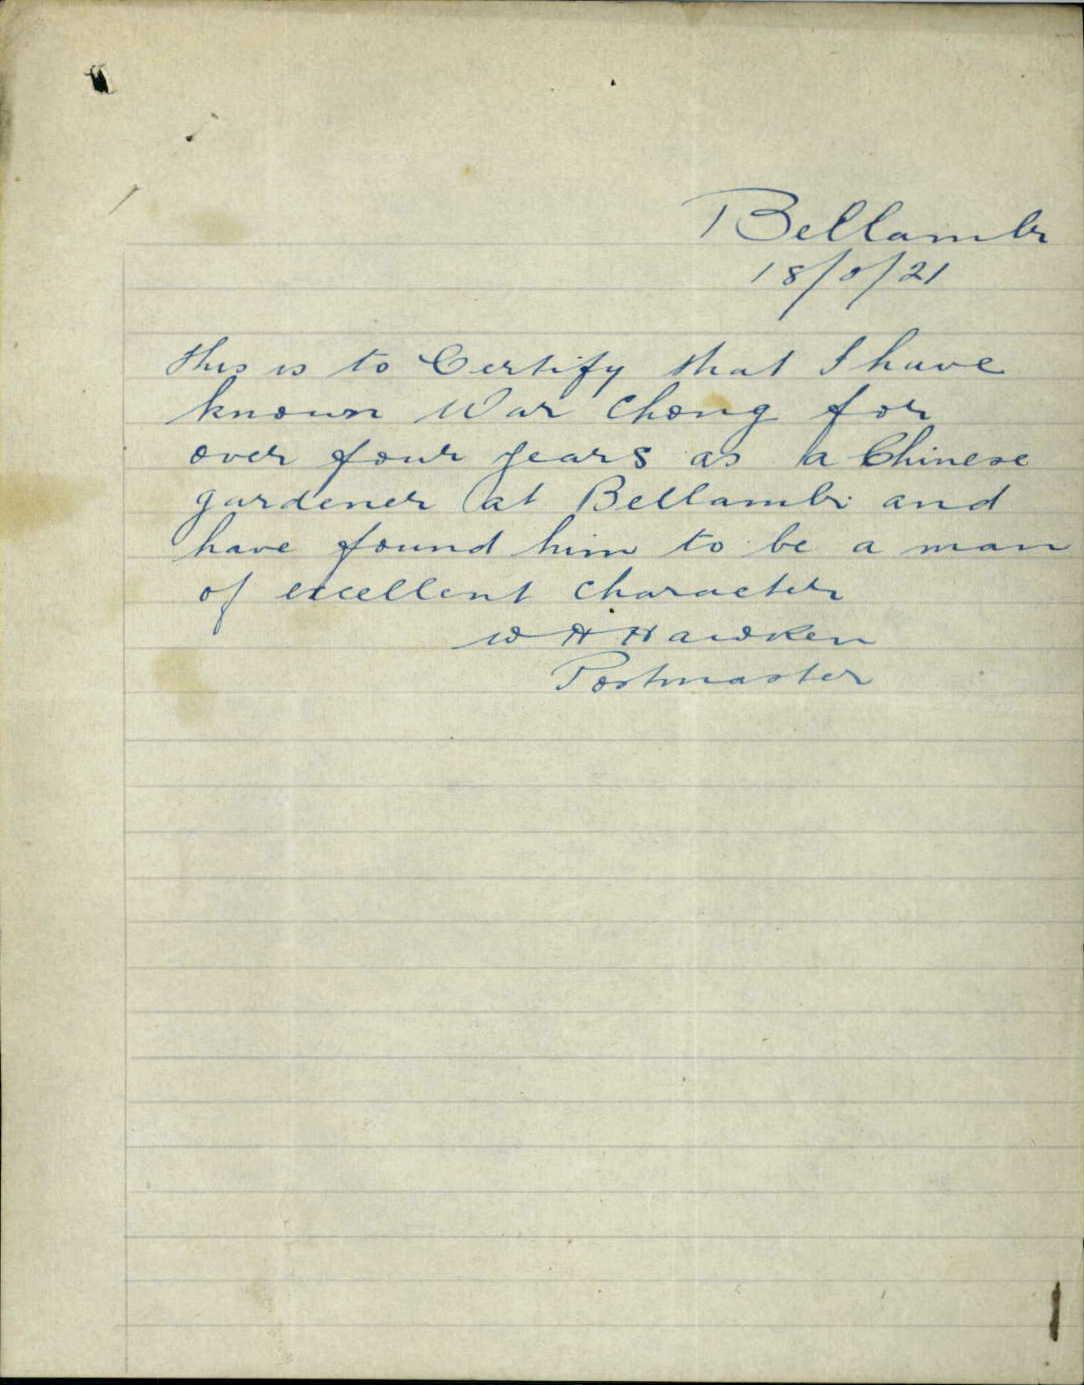 Bellambi
18/5/21
This is to Certify that I have
known War Chong for
over four years as a Chinese
gardener at Bellambi and
have found him to be a man
of excellent character
W H Hawken
Postmaster